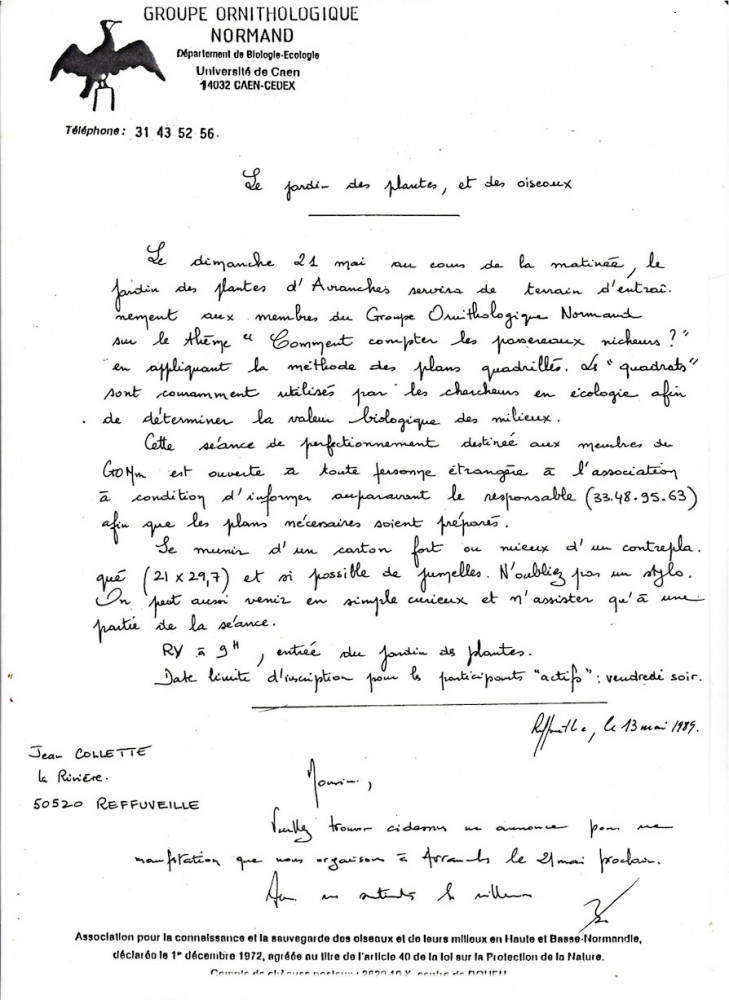 GROUPE ORNITHOLOGIQUE
NORMAND
Département de Biologie-Ecologie
Université de Caen
14032 CAEN-CEDEX
Téléphone : 31 43 52 56.
Le jardin des plantes, et des oiseaux
Le dimanche 21 mai au cours de la matinée, le
jardin des plantes d'Avranches servira de terrain d'entraî-
nement aux membres du Groupe Ornithologique Normand
sur le thème "Comment compter les passereaux nicheurs ?"
en appliquant la méthode des plans quadrillés. Les "quadrats"
sont couramment utilisés par les chercheurs en écologie afin
de déterminer la valeur biologique des milieux.
Cette séance de perfectionnement destinée aux membres du
GONm est ouverte à toute personne étrangère à l'association
à condition d'informer auparavant le responsable (33.48.95.63)
afin que les plans nécessaires soient préparés.
Se munir d'un carton fort ou mieux d'un contrepla-
qué (21 x 29,7) et si possible de jumelles. N'oubliez pas un stylo.
On peut aussi venir en simple curieux et n'assister qu'à une
partie de la séance.
RV à 9H, entrée du jardin des plantes.
Date limite d'inscription pour les participants "actifs" : vendredi soir.
Reffuveille, le 13 mai 1989.
Jean COLLETTE
la Rivière.
50520 REFFUVEILLE
Monsieur,
Veuillez trouver ci-dessus une annonce pour une
manifestation que nous organisons à Avranches le 21 mai prochain.
Association pour la connaissance et la sauvegarde des oiseaux et de leurs milieux en Haute et Basse-Normandie,
déclarée le 1er décembre 1972, agréée au titre de l'article 40 de la loi sur la Protection de la Nature.